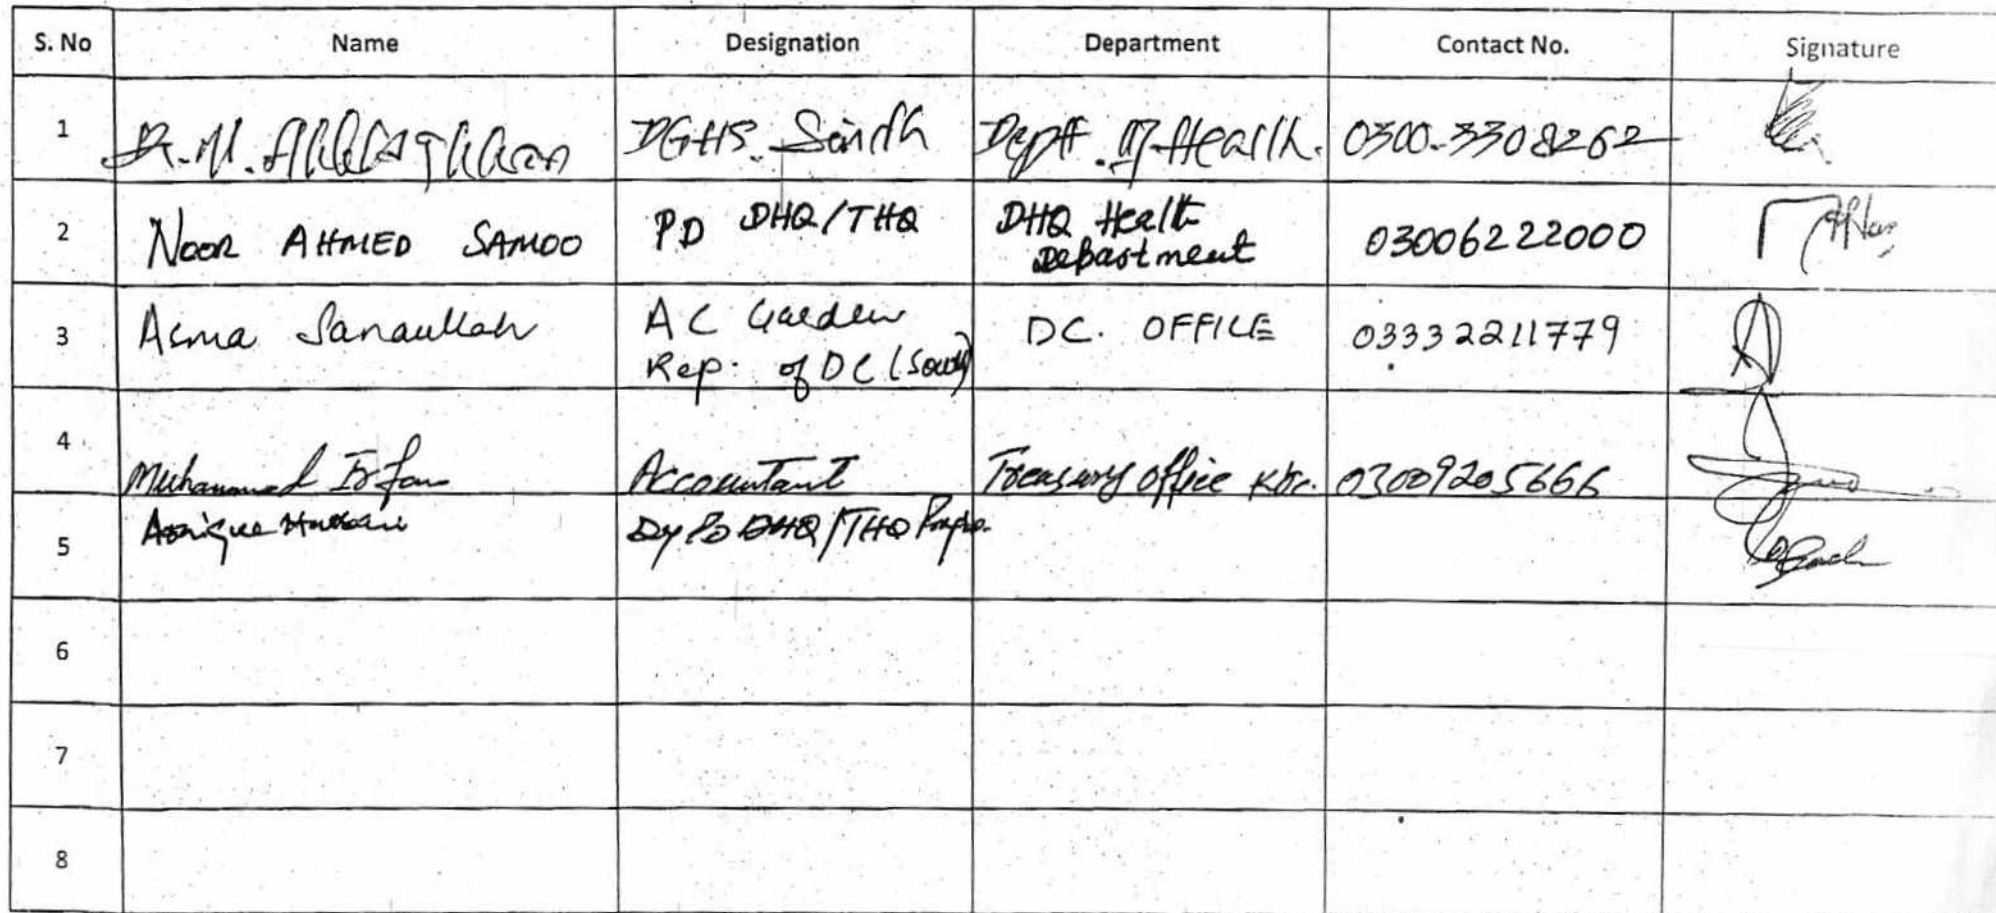 S. No Name Designation Department Contact No. Signature
1 Dr. M. Akhlaq Khan DGHS Sindh Deptt. of Health. 0300-3308262
2 NOOR AHMED SAMOO PD DHQ/THQ DHQ Health Department 03006222000
3 Asma Sanaullah AC Garden Rep. of DC (South) DC. OFFICE 03332211779
4 Muhammad Irfan Accountant Treasury office 03009205666
5 Hussain Dy PD DHQ/THQ
6
7
8